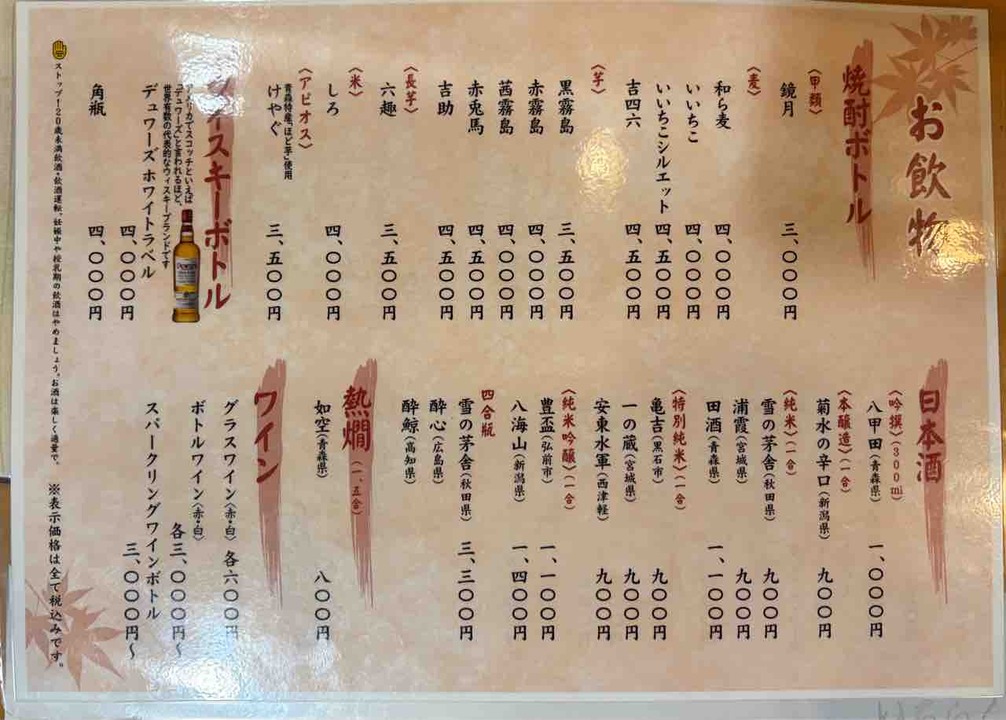 お飲物
焼酎ボトル
〈甲類〉
鏡月 三、〇〇〇円
〈麦〉
和ら麦 四、〇〇〇円
いいちこ 四、〇〇〇円
いいちこシルエット 四、五〇〇円
吉四六 四、五〇〇円
〈芋〉
黒霧島 三、五〇〇円
赤霧島 四、〇〇〇円
茜霧島 四、〇〇〇円
赤兎馬 四、五〇〇円
吉助 四、五〇〇円
〈長芋〉
六趣 三、五〇〇円
〈米〉
しろ 四、〇〇〇円
〈アピオス〉
青森特産、ほど芋使用
けやぐ 三、五〇〇円
ウィスキーボトル
アメリカでスコッチといえば
「デュワーズ」と言われるほど、
世界有数の代表的なウィスキーブランドです
デュワーズ ホワイトラベル 四、〇〇〇円
角瓶 四、〇〇〇円
日本酒
〈吟撰〉(300ml)
八甲田(青森県) 一、〇〇〇円
〈本醸造〉(一合)
菊水の辛口(新潟県) 九〇〇円
〈純米〉(一合)
雪の茅舎(秋田県) 九〇〇円
浦霞(宮城県) 九〇〇円
田酒(青森県) 一、一〇〇円
〈特別純米〉(一合)
亀吉(黒石市) 九〇〇円
一の蔵(宮城県) 九〇〇円
安東水軍(西津軽) 九〇〇円
〈純米吟醸〉(一合)
豊盃(弘前市) 一、一〇〇円
八海山(新潟県) 一、四〇〇円
四合瓶
雪の茅舎(秋田県) 三、三〇〇円
酔心(広島県)
酔鯨(高知県)
熱燗(一、五合)
如空(青森県) 八〇〇円
ワイン
グラスワイン(赤・白) 各六〇〇円
ボトルワイン(赤・白) 各三、〇〇〇円～
スパークリングワインボトル 三、〇〇〇円～
ストップ！20歳未満飲酒・飲酒運転。妊娠中や授乳期の飲酒はやめましょう。お酒は楽しく適量で。
※表示価格は全て税込みです。